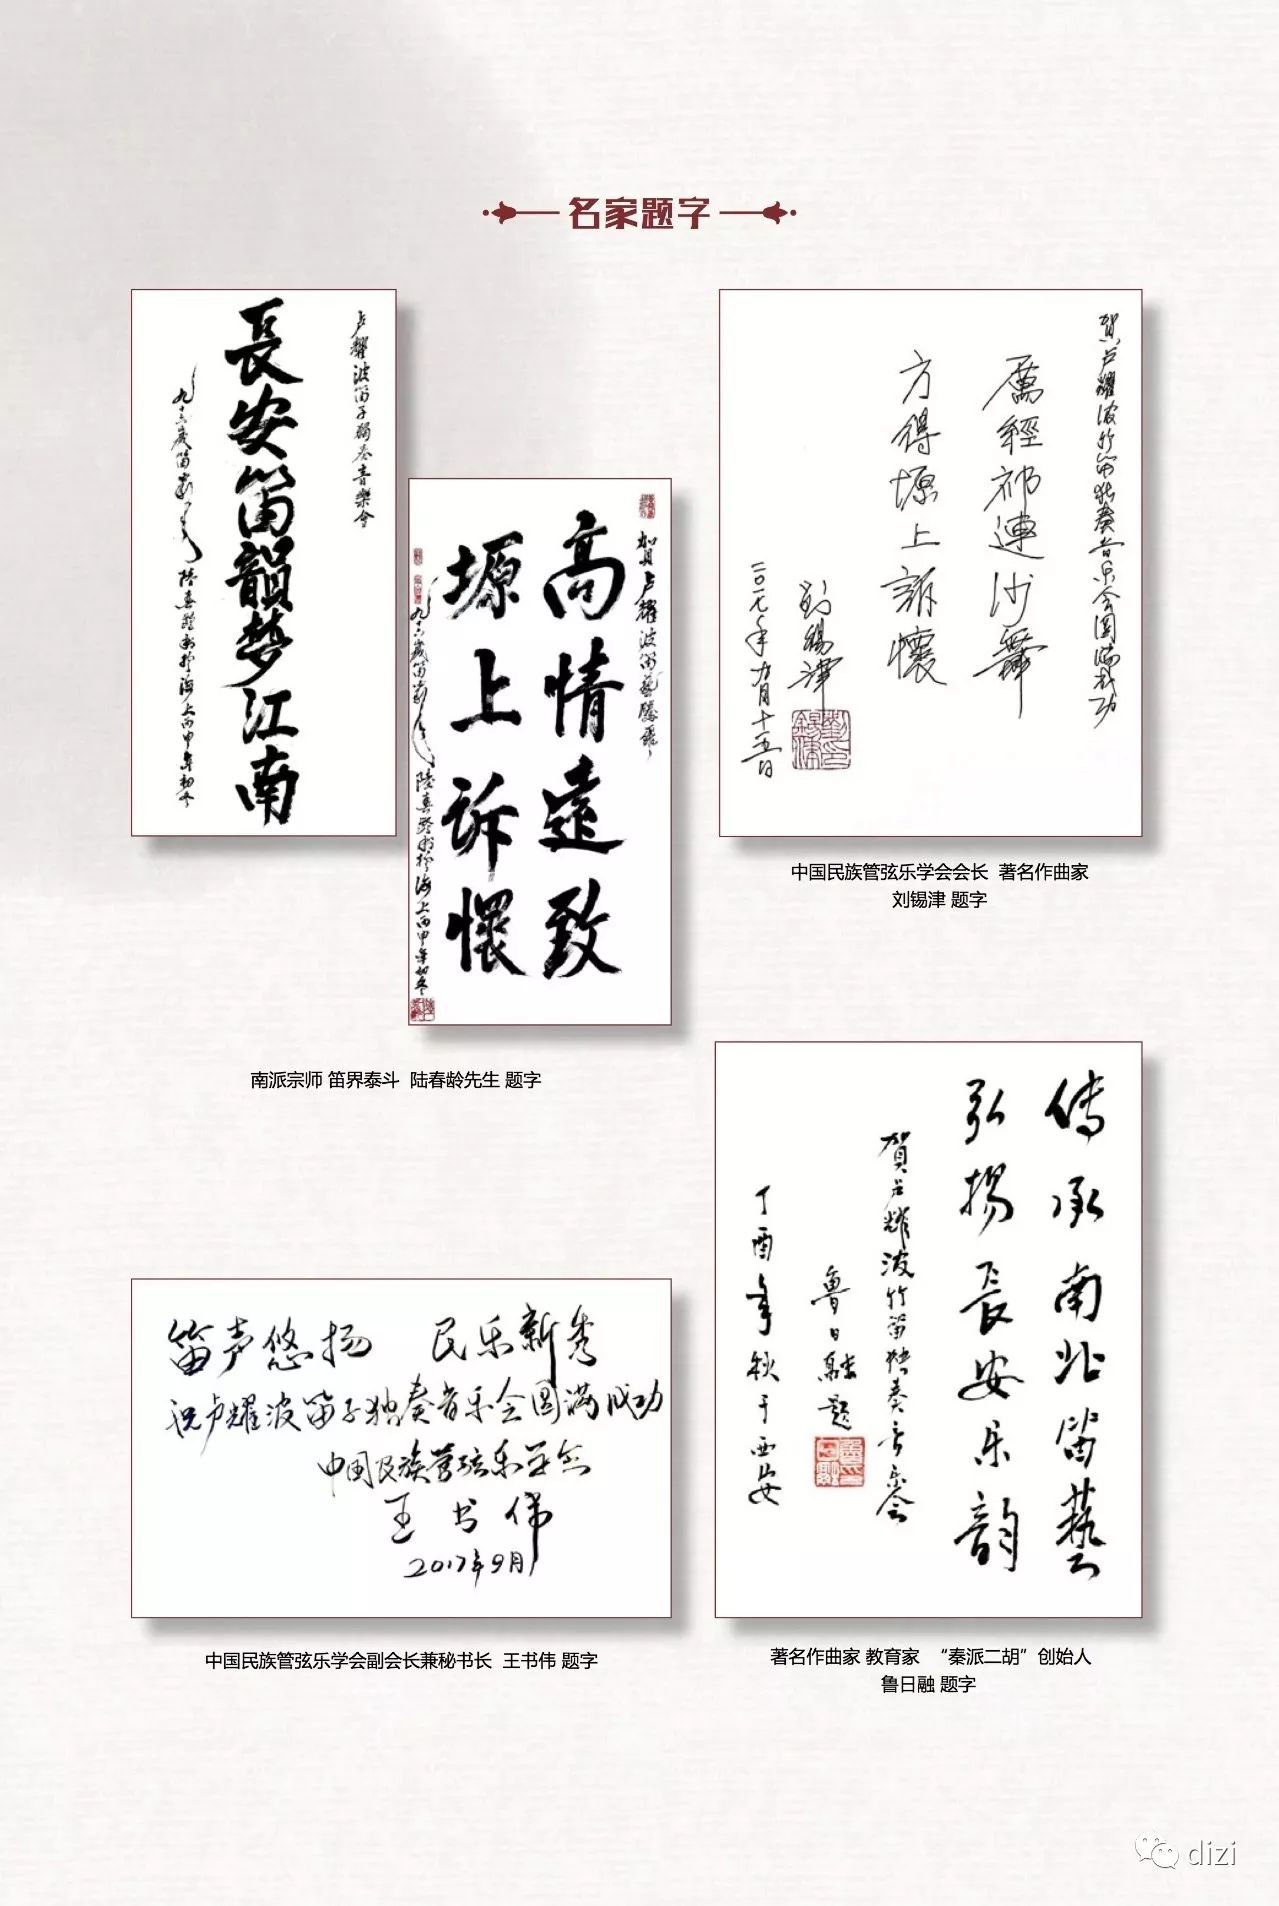 名家题字
卢耀波笛子独奏音樂會
長安笛韻梦江南
九十六歲笛翁
陸春齡书於海上丙申年初冬
賀卢耀波笛藝騰飛
高情遠致
塬上訴懷
九十六歲笛翁
陸春齡书於海上丙申年初冬
南派宗师 笛界泰斗 陆春龄先生 题字
贺卢耀波竹笛独奏音乐会圆满成功
厲經祁連沙舞
方得塬上訴懷
劉錫津
二〇一七年九月十五日
中国民族管弦乐学会会长 著名作曲家
刘锡津 题字
笛声悠扬 民乐新秀
祝卢耀波笛子独奏音乐会圆满成功
中国民族管弦乐学会
王书伟
2017年9月
中国民族管弦乐学会副会长兼秘书长 王书伟 题字
传承南北笛藝
弘揚長安乐韵
賀卢耀波竹笛独奏音乐会
鲁日融题
丁酉年秋于西安
著名作曲家 教育家 “秦派二胡”创始人
鲁日融 题字
dizi